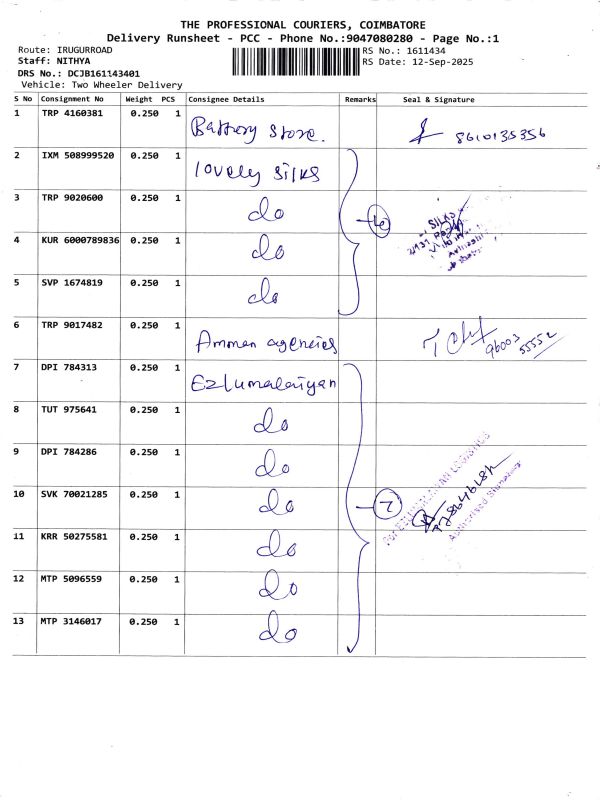 THE PROFESSIONAL COURIERS, COIMBATORE
Delivery Runsheet - PCC - Phone No.:9047080280 - Page No.:1
Route: IRUGURROAD
RS No.: 1611434
Staff: NITHYA
RS Date: 12-Sep-2025
DRS No.: DCJB161143401
Vehicle: Two Wheeler Delivery
S No Consignment No Weight PCS Consignee Details Remarks Seal & Signature
1 TRP 4160381 0.250 1 Battery Store. 8610135356
2 IXM 508999520 0.250 1 lovely silks
3 TRP 9020600 0.250 1 do
SILKS
4 KUR 6000789836 0.250 1 do
5 SVP 1674819 0.250 1 do
6 TRP 9017482 0.250 1 Amman agencies 96003
55552
7 DPI 784313 0.250 1 Ezlumalaiyan
8 TUT 975641 0.250 1 do
9 DPI 784286 0.250 1 do
10 SVK 70021285 0.250 1 do 7
Authorised Signatory
11 KRR 50275581 0.250 1 do
12 MTP 5096559 0.250 1 do
13 MTP 3146017 0.250 1 do